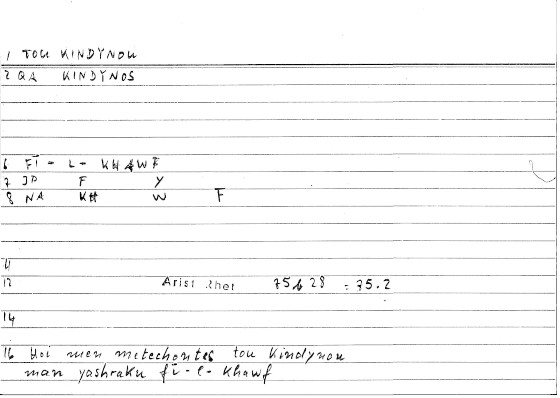 1 TOU KINDYNOU
2 QA KINDYNOS
6 FĪ - L - KHAWF
7 JP F Y
8 NA KH W F
11
12 Arist Rhet 75b28 = 75.2
14
16 Hoi men metechontes tou Kindynou
man yashraku fī-l-Khawf